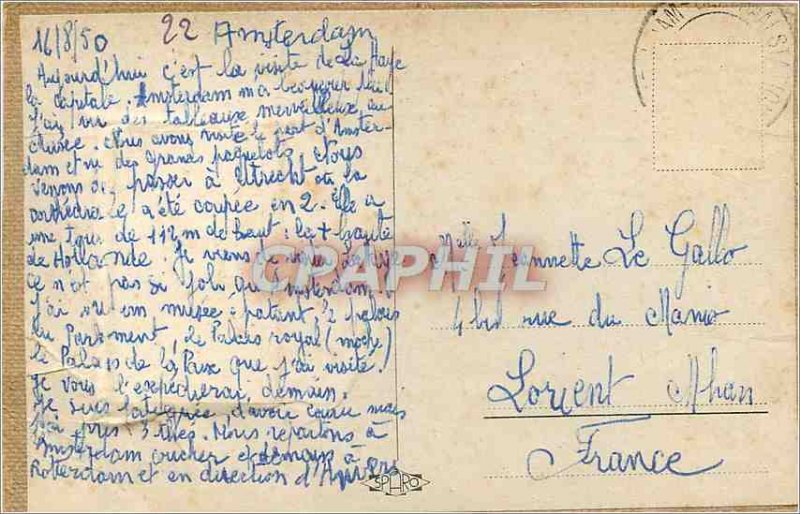 16/8/50 22 Amsterdam
Aujourd'hui c'est la visite de La Haye
la capitale. Amsterdam m'a beaucoup plu
J'ai vu des tableaux merveilleux au
Musée. Nous avons visité le port d'Amster-
dam et vu des grands paquebots. Nous
venons de passer à Utrecht où la
cathédrale a été coupée en 2. Elle a
une tour de 112 m de haut : la + haute
de Hollande. Je viens de voir La Haye
ce n'est pas si joli qu'Amsterdam.
J'ai vu un musée : patant, 2 palais
du Parlement, le Palais royal (moche)
le Palais de la Paix que j'ai visité.
Je vous l'expédierai demain.
Je suis fatiguée d'avoir couru mais
j'ai pris 3 thés. Nous repartons à
Amsterdam coucher et demain à
Rotterdam et en direction d'Anvers
Melle Jeannette Le Gallo
4 bis rue du Manio
Lorient Mhan
France
CPAPHIL
SPARO